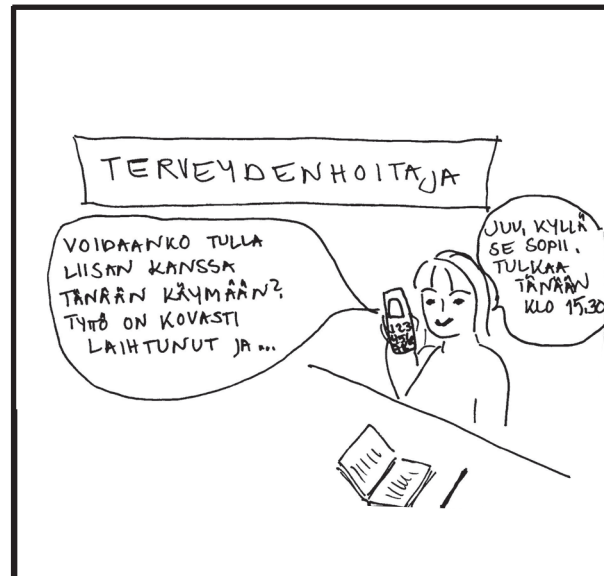 TERVEYDENHOITAJA
VOIDAANKO TULLA
LIISAN KANSSA
TÄNÄÄN KÄYMÄÄN?
TYTTÖ ON KOVASTI
LAIHTUNUT JA...
JUU, KYLLÄ
SE SOPII.
TULKAA
TÄNÄÄN
KLO 15.30
123